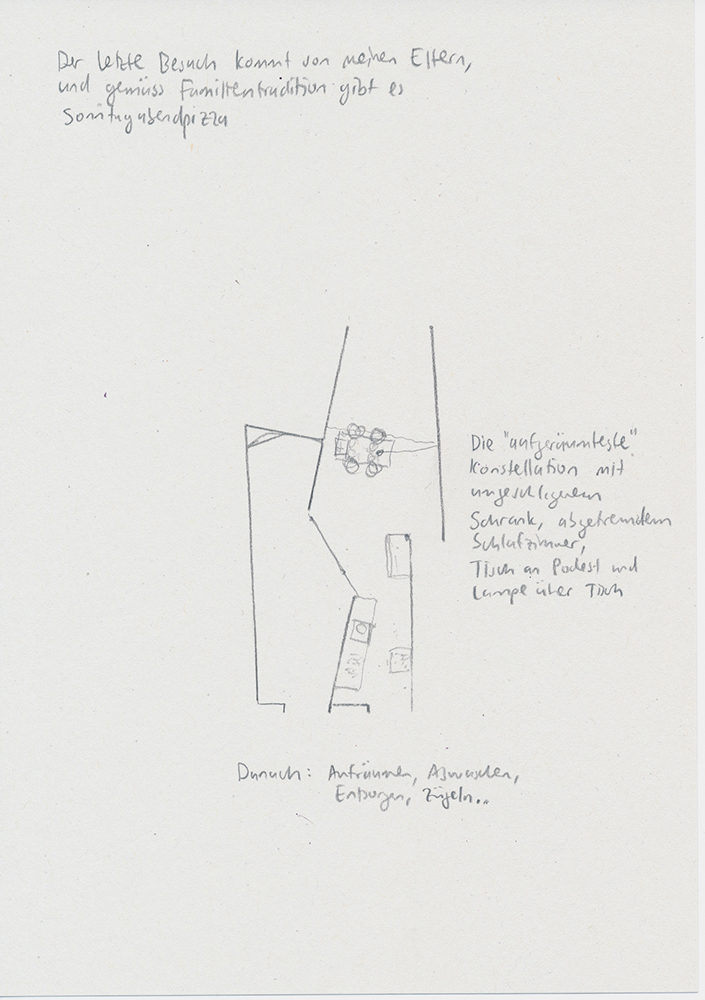 Der letzte Besuch kommt von meinen Eltern,
und gemäss Familientradition gibt es
Sonntagabendpizza
Die "aufgeräumteste"
Konstellation mit
umgeschlagenem
Schrank, abgetrenntem
Schlafzimmer,
Tisch an Podest und
Lampe über Tisch
Danach: Aufräumen, Abwaschen,
Entsorgen, Zügeln..